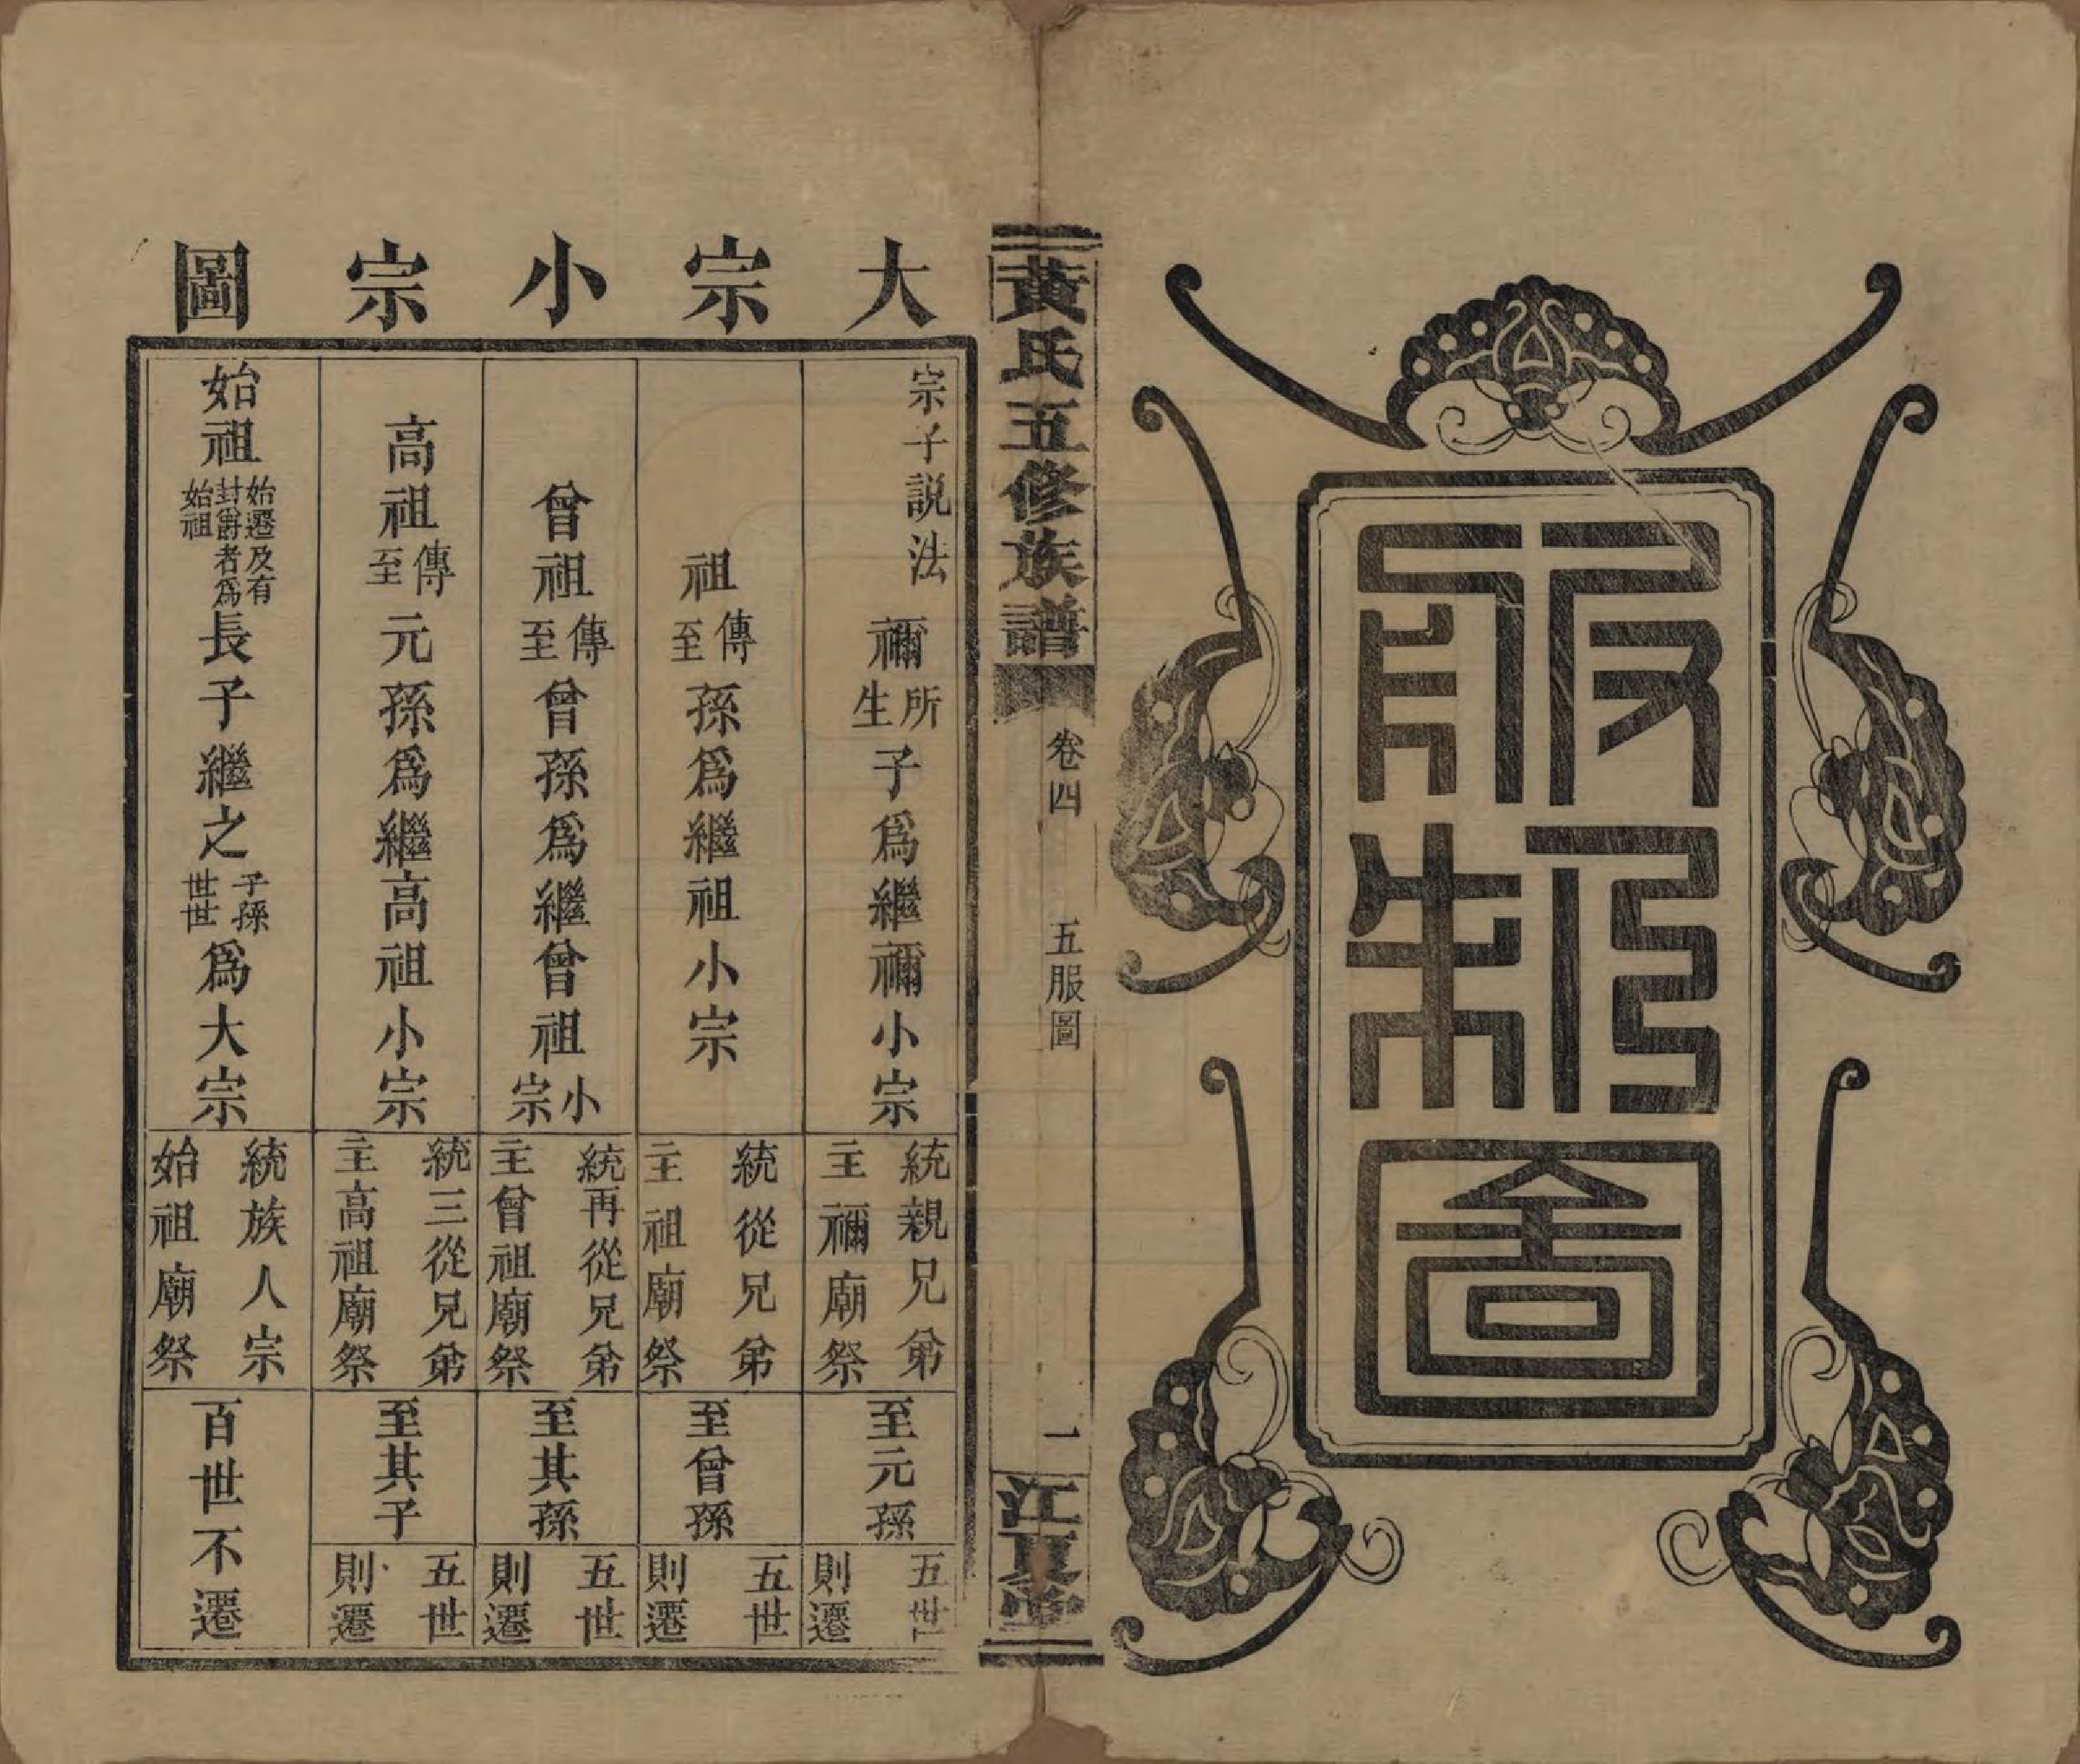 服制圖
黃氏五修族譜
卷四
五服圖
一
江夏堂
大宗小宗圖
宗子説法
禰所生子爲繼禰小宗
統親兄弟
主禰廟祭
至元孫
五世
則遷
祖傳至孫爲繼祖小宗
統從兄弟
主祖廟祭
至曾孫
五世
則遷
曾祖傳至曾孫爲繼曾祖小宗
統再從兄弟
主曾祖廟祭
至其孫
五世
則遷
高祖傳至元孫爲繼高祖小宗
統三從兄弟
主高祖廟祭
至其子
五世
則遷
始祖始遷及有封爵者爲始祖長子繼之子孫世世爲大宗
統族人宗
始祖廟祭
百世不遷